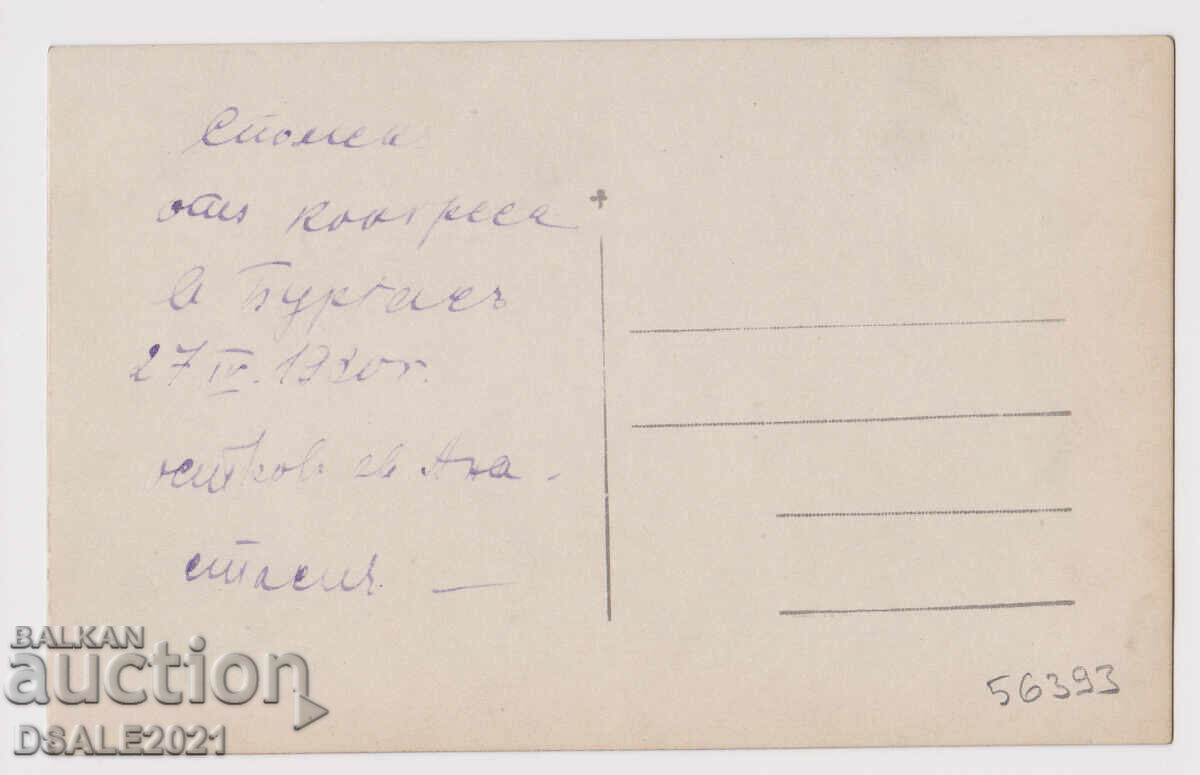 Спомен
отъ конгреса
в Бургасъ
27 IV. 1930 г.
остров св Ана-
стасия. —
56393
BALKAN
auction
DSALE2021